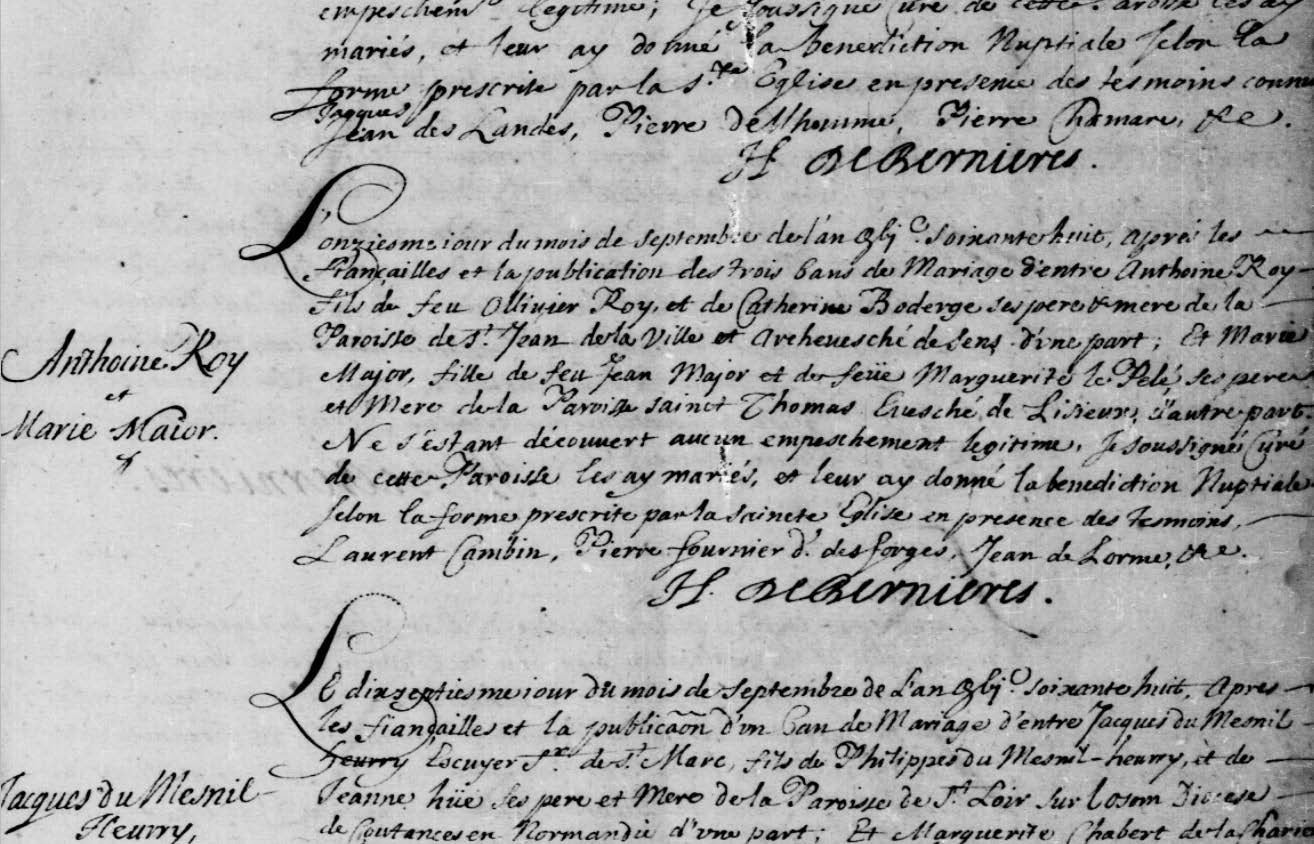 empeschem. legitime; Je soussigné curé de cette Paroisse les ay
mariés, et leur ay donné la benediction Nuptiale selon la
forme prescrite par la s.te Eglise en presence des tesmoins connus
Jacques
Jean des Landes, Pierre Pierre Chamare, &c.
H. DeBernieres.
L'onziesme iour du mois de septembre de l'an gbjc. soixante huit, aprés les
fiançailles et la publication des trois bans de Mariage d'entre Anthoine Roy
fils de feu Ollivier Roy, et de Catherine Boderge ses pere & mere de la
Paroisse de St. Jean de la Ville et Archevesché de Sens d'une part; Et Marie
Major, fille de feu Jean Major et de feüe Marguerite le Pelé, ses pere
et Mere de la Paroisse sainct Thomas Evesché de Lisieux, d'autre part.
Anthoine Roy
et
Marie Maior.
Ne s'estant découvert aucun empeschement legitime, Je soussigné Curé
de cette Paroisse les ay mariés, et leur ay donné la benediction Nuptiale
selon la forme prescrite par la saincte Eglise en presence des tesmoins,
Laurent Cambin, Pierre fournier d. des forges, Jean de Lorme, &c.
H. DeBernieres.
Le dixseptiesme iour du mois de septembre de l'an gbjc. soixante huit, Apres
les fiançailles et la publicaõn d'vn ban de Mariage d'entre Jacques du Mesnil
heurry Escuyer Sr. de St. Marc, fils de Philippes du Mesnil-heurry, et de
Jeanne hüe ses pere et Mere de la Paroisse de St. Loir sur Diocese
de Coutances en Normandie d'vne part; Et Marguerite Chabert de la
Jacques du Mesnil-
Heurry,